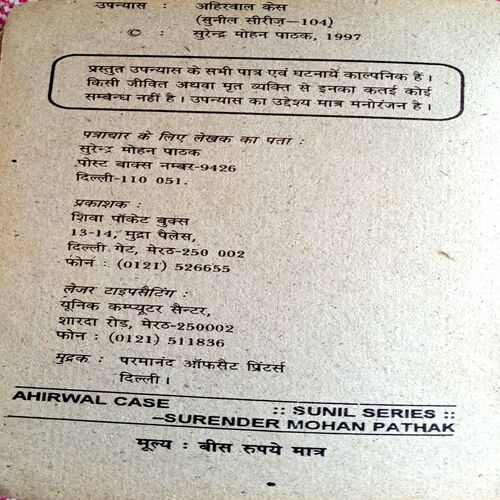 उपन्यास : अहिरवाल केस
(सुनील सीरीज़—104)
© : सुरेन्द्र मोहन पाठक, 1997
प्रस्तुत उपन्यास के सभी पात्र एवं घटनायें काल्पनिक हैं ।
किसी जीवित अथवा मृत व्यक्ति से इनका कतई कोई
सम्बन्ध नहीं है । उपन्यास का उद्देश्य मात्र मनोरंजन है ।
पत्राचार के लिए लेखक का पता :
सुरेन्द्र मोहन पाठक
पोस्ट बाक्स नम्बर-9426
दिल्ली-110 051.
प्रकाशक :
शिवा पॉकेट बुक्स
13-14, मुद्रा पैलेस,
दिल्ली गेट, मेरठ-250 002
फोन : (0121) 526655
लेजर टाइपसैटिंग :
यूनिक कम्प्यूटर सैन्टर,
शारदा रोड, मेरठ-250002
फोन : (0121) 511836
मुद्रक : परमानंद ऑफसैट प्रिंटर्स
दिल्ली ।
AHIRWAL CASE :: SUNIL SERIES ::
–SURENDER MOHAN PATHAK
मूल्य : बीस रुपये मात्र